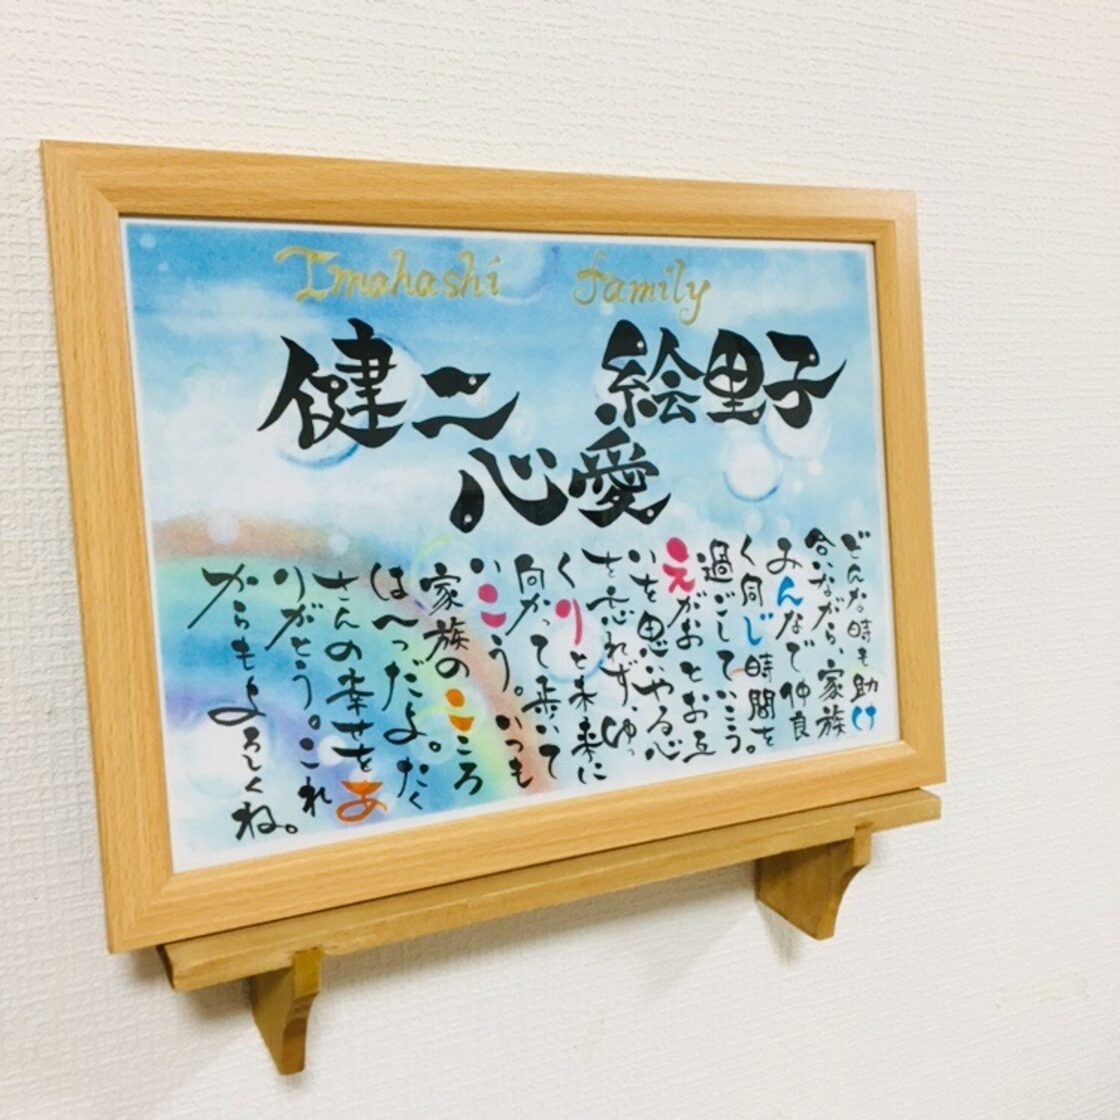 Imahashi family
健二 絵里子
心愛
どんな時も助け
合いながら、家族
みんなで仲良
く同じ時間を
過ごしていこう。
えがおとお互
いを思いやる心
を忘れず、ゆっ
くりと未来に
向かって歩いて
いこう。いつも
家族のこころ
は一つだよ。たく
さんの幸せをあ
りがとう。これ
からもよろしくね。